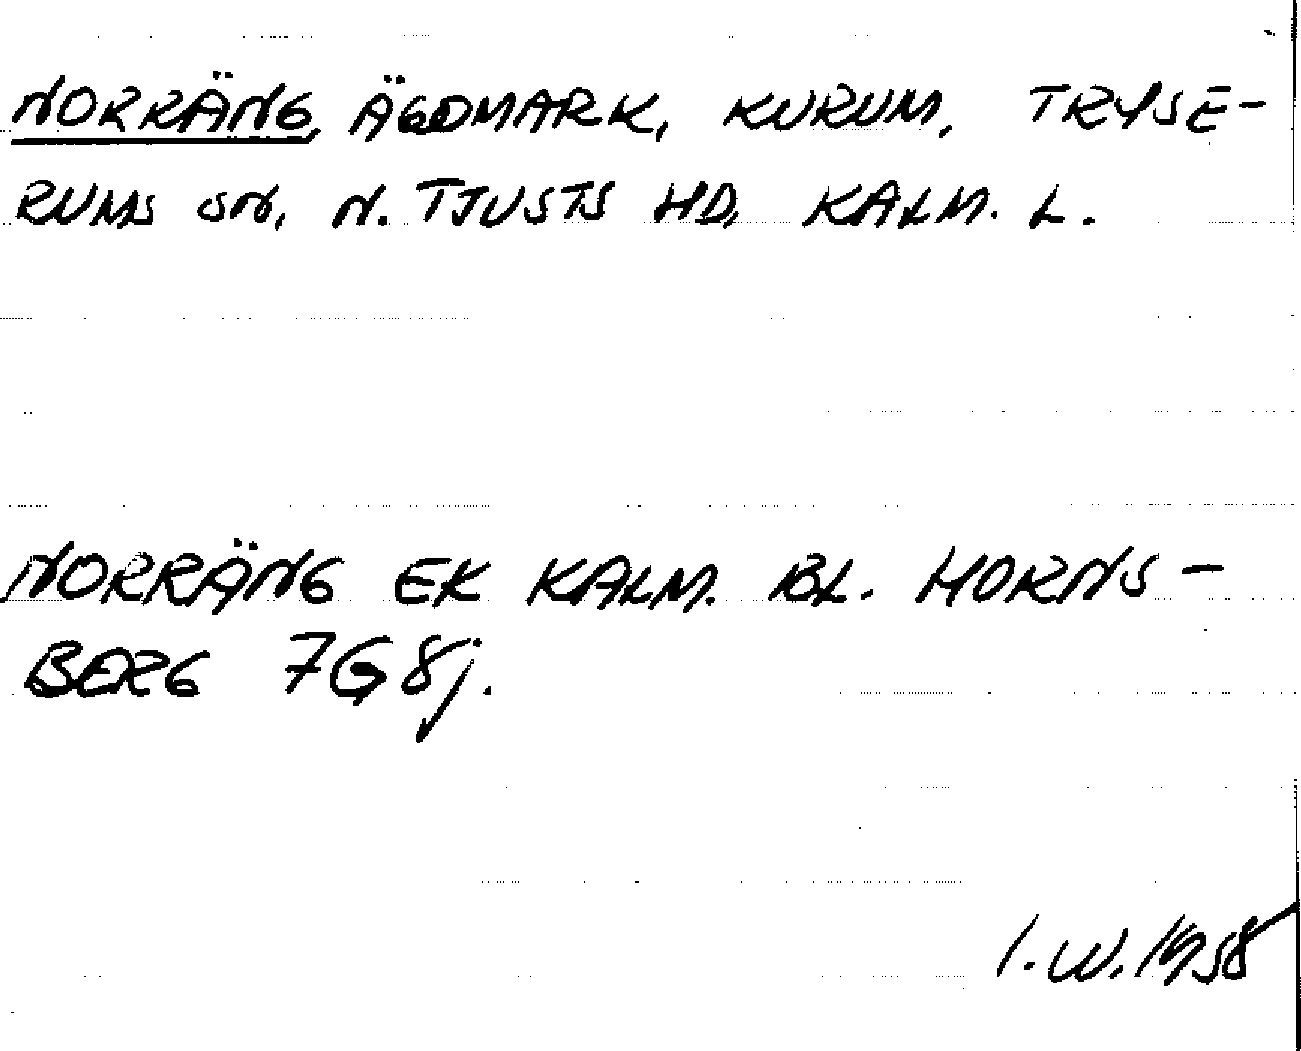 NORRÄNG, ÄGOMARK, KURUM, TRYSE-
RUMS SN, N. TJUSTS HD, KALM. L.
NORRÄNG EK KALM. BL. HORNS-
BERG 7G8j.
I.W. 1958